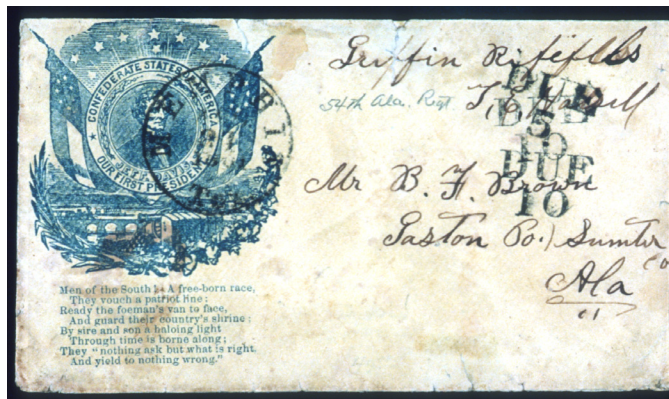 CONFEDERATE STATES OF AMERICA
JEFF. DAVIS
OUR FIRST PRESIDENT
Men of the South! A free-born race,
They vouch a patriot line;
Ready the foeman's van to face,
And guard their country's shrine:
By sire and son a haloing light
Through time is borne along;
They "nothing ask but what is right,
And yield to nothing wrong."
Griffin
54th Ala. Regt
DUE
DUE
5
10
DUE
10
Mr B. F. Brown
Gaston Po.) Sumter
Co
Ala